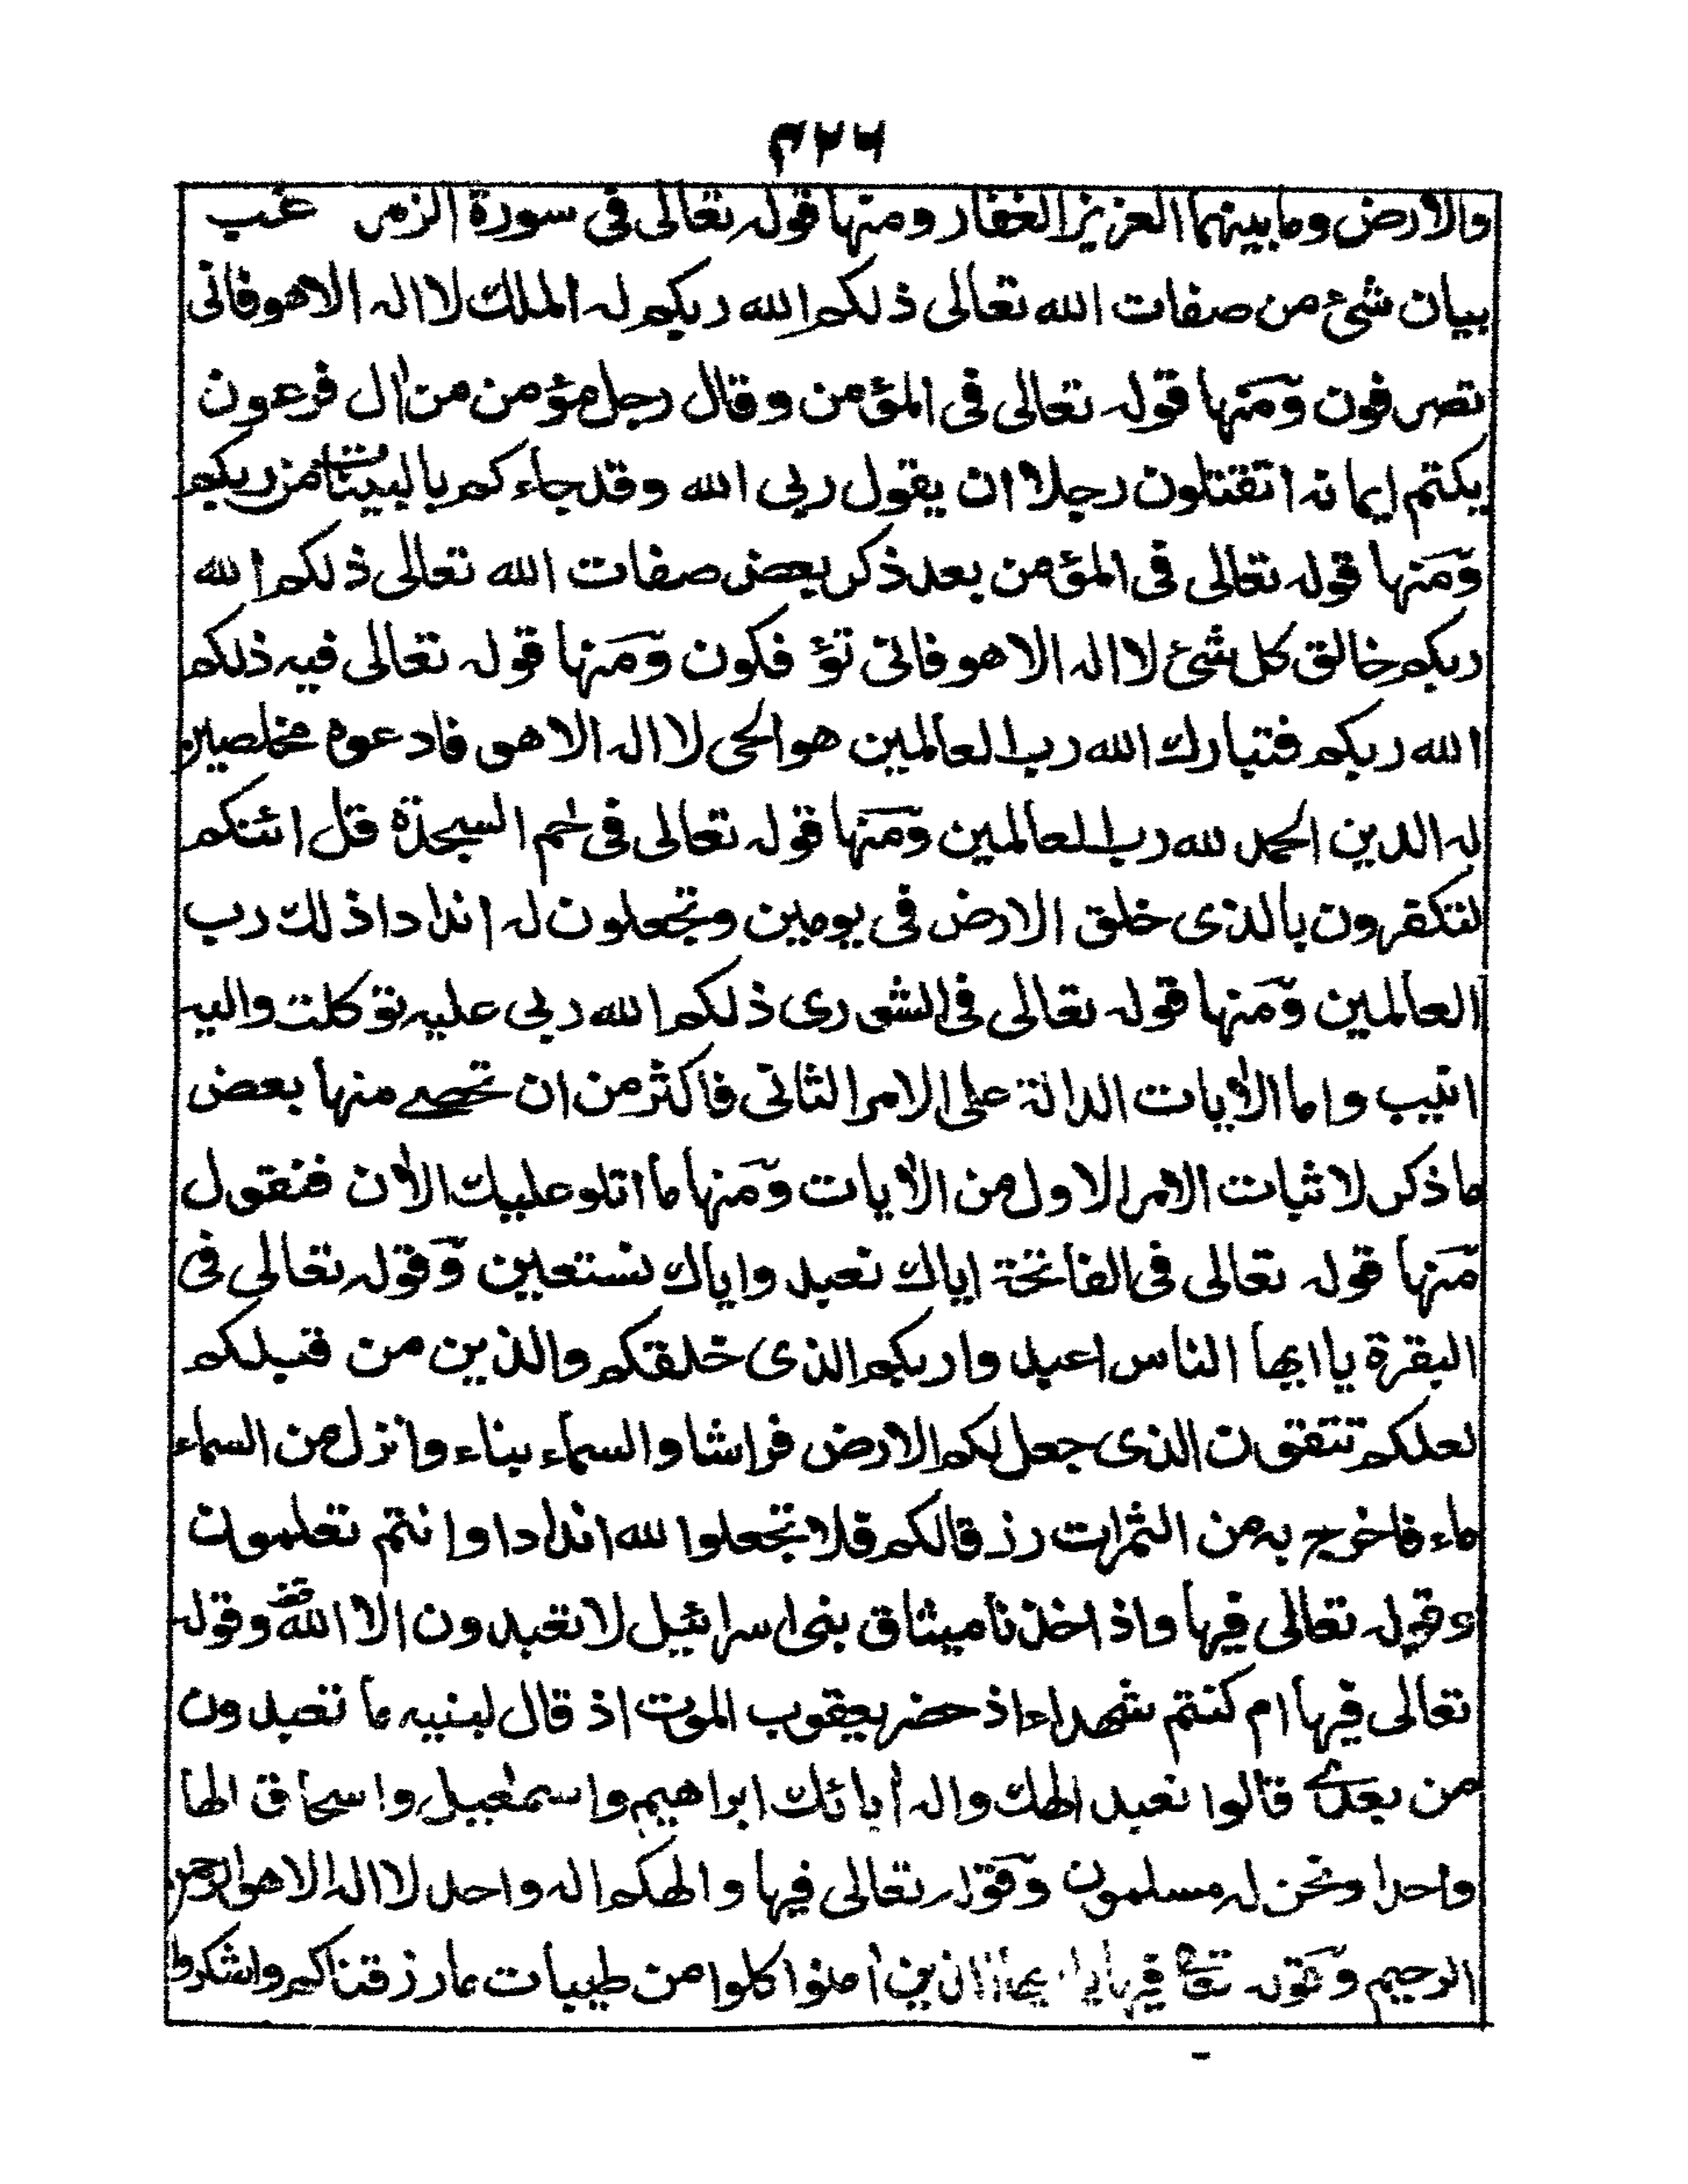 ۴۲۶
والارض وما بينهما العزيز الغفار ومنها قوله تعالى فى سورة الزمر غب
بيان شئ من صفات الله تعالى ذلكم الله ربكم له الملك لا اله الا هو فانى
تصرفون ومنها قوله تعالى فى المؤمن وقال رجل مؤمن من اٰل فرعون
يكتم ايمانه اتقتلون رجلا ان يقول ربى الله وقد جاءكم بالبينات من ربكم
ومنها قوله تعالى فى المؤمن بعد ذكر بعض صفات الله تعالى ذلكم الله
ربكم خالق كل شئ لا اله الا هو فانى تؤفكون ومنها قوله تعالى فيه ذلكم
الله ربكم فتبارك الله رب العالمين هو الحى لا اله الا هو فادعوه مخلصين
له الدين الحمد لله رب العالمين ومنها قوله تعالى فى حٰم السجدة قل ائنكم
لتكفرون بالذى خلق الارض فى يومين وتجعلون له اندادا ذلك رب
العالمين ومنها قوله تعالى فى الشورى ذلكم الله ربى عليه توكلت واليه
انيب واما الاٰيات الدالة على الامر الثانى فاكثر من ان تحصے منها بعض
ما ذكر لاثبات الامر الاول من الاٰيات ومنها ما اتلو عليك الاٰن فنقول
منها قوله تعالى فى الفاتحة اياك نعبد واياك نستعين وقوله تعالى فى
البقرة يا ايها الناس اعبدوا ربكم الذى خلقكم والذين من قبلكم
لعلكم تتقون الذى جعل لكم الارض فراشا والسماء بناء وانزل من السماء
ماء فاخرج به من الثمرات رزقا لكم فلا تجعلوا لله اندادا وانتم تعلمون
وقوله تعالى فيها واذ اخذنا ميثاق بنى اسرائيل لا تعبدون الا الله وقوله
تعالى فيها ام كنتم شهداء اذ حضر يعقوب الموت اذ قال لبنيه ما تعبدون
من بعدے قالوا نعبد الهك واله اٰبائك ابراهيم واسمٰعيل واسحاق الها
واحدا ونحن له مسلمون وقوله تعالى فيها والهكم اله واحد لا اله الا هو الرحمن
الرحيم وقوله تعا فيها يا ايها الذين اٰمنوا كلوا من طيبات ما رزقناكم واشكروا